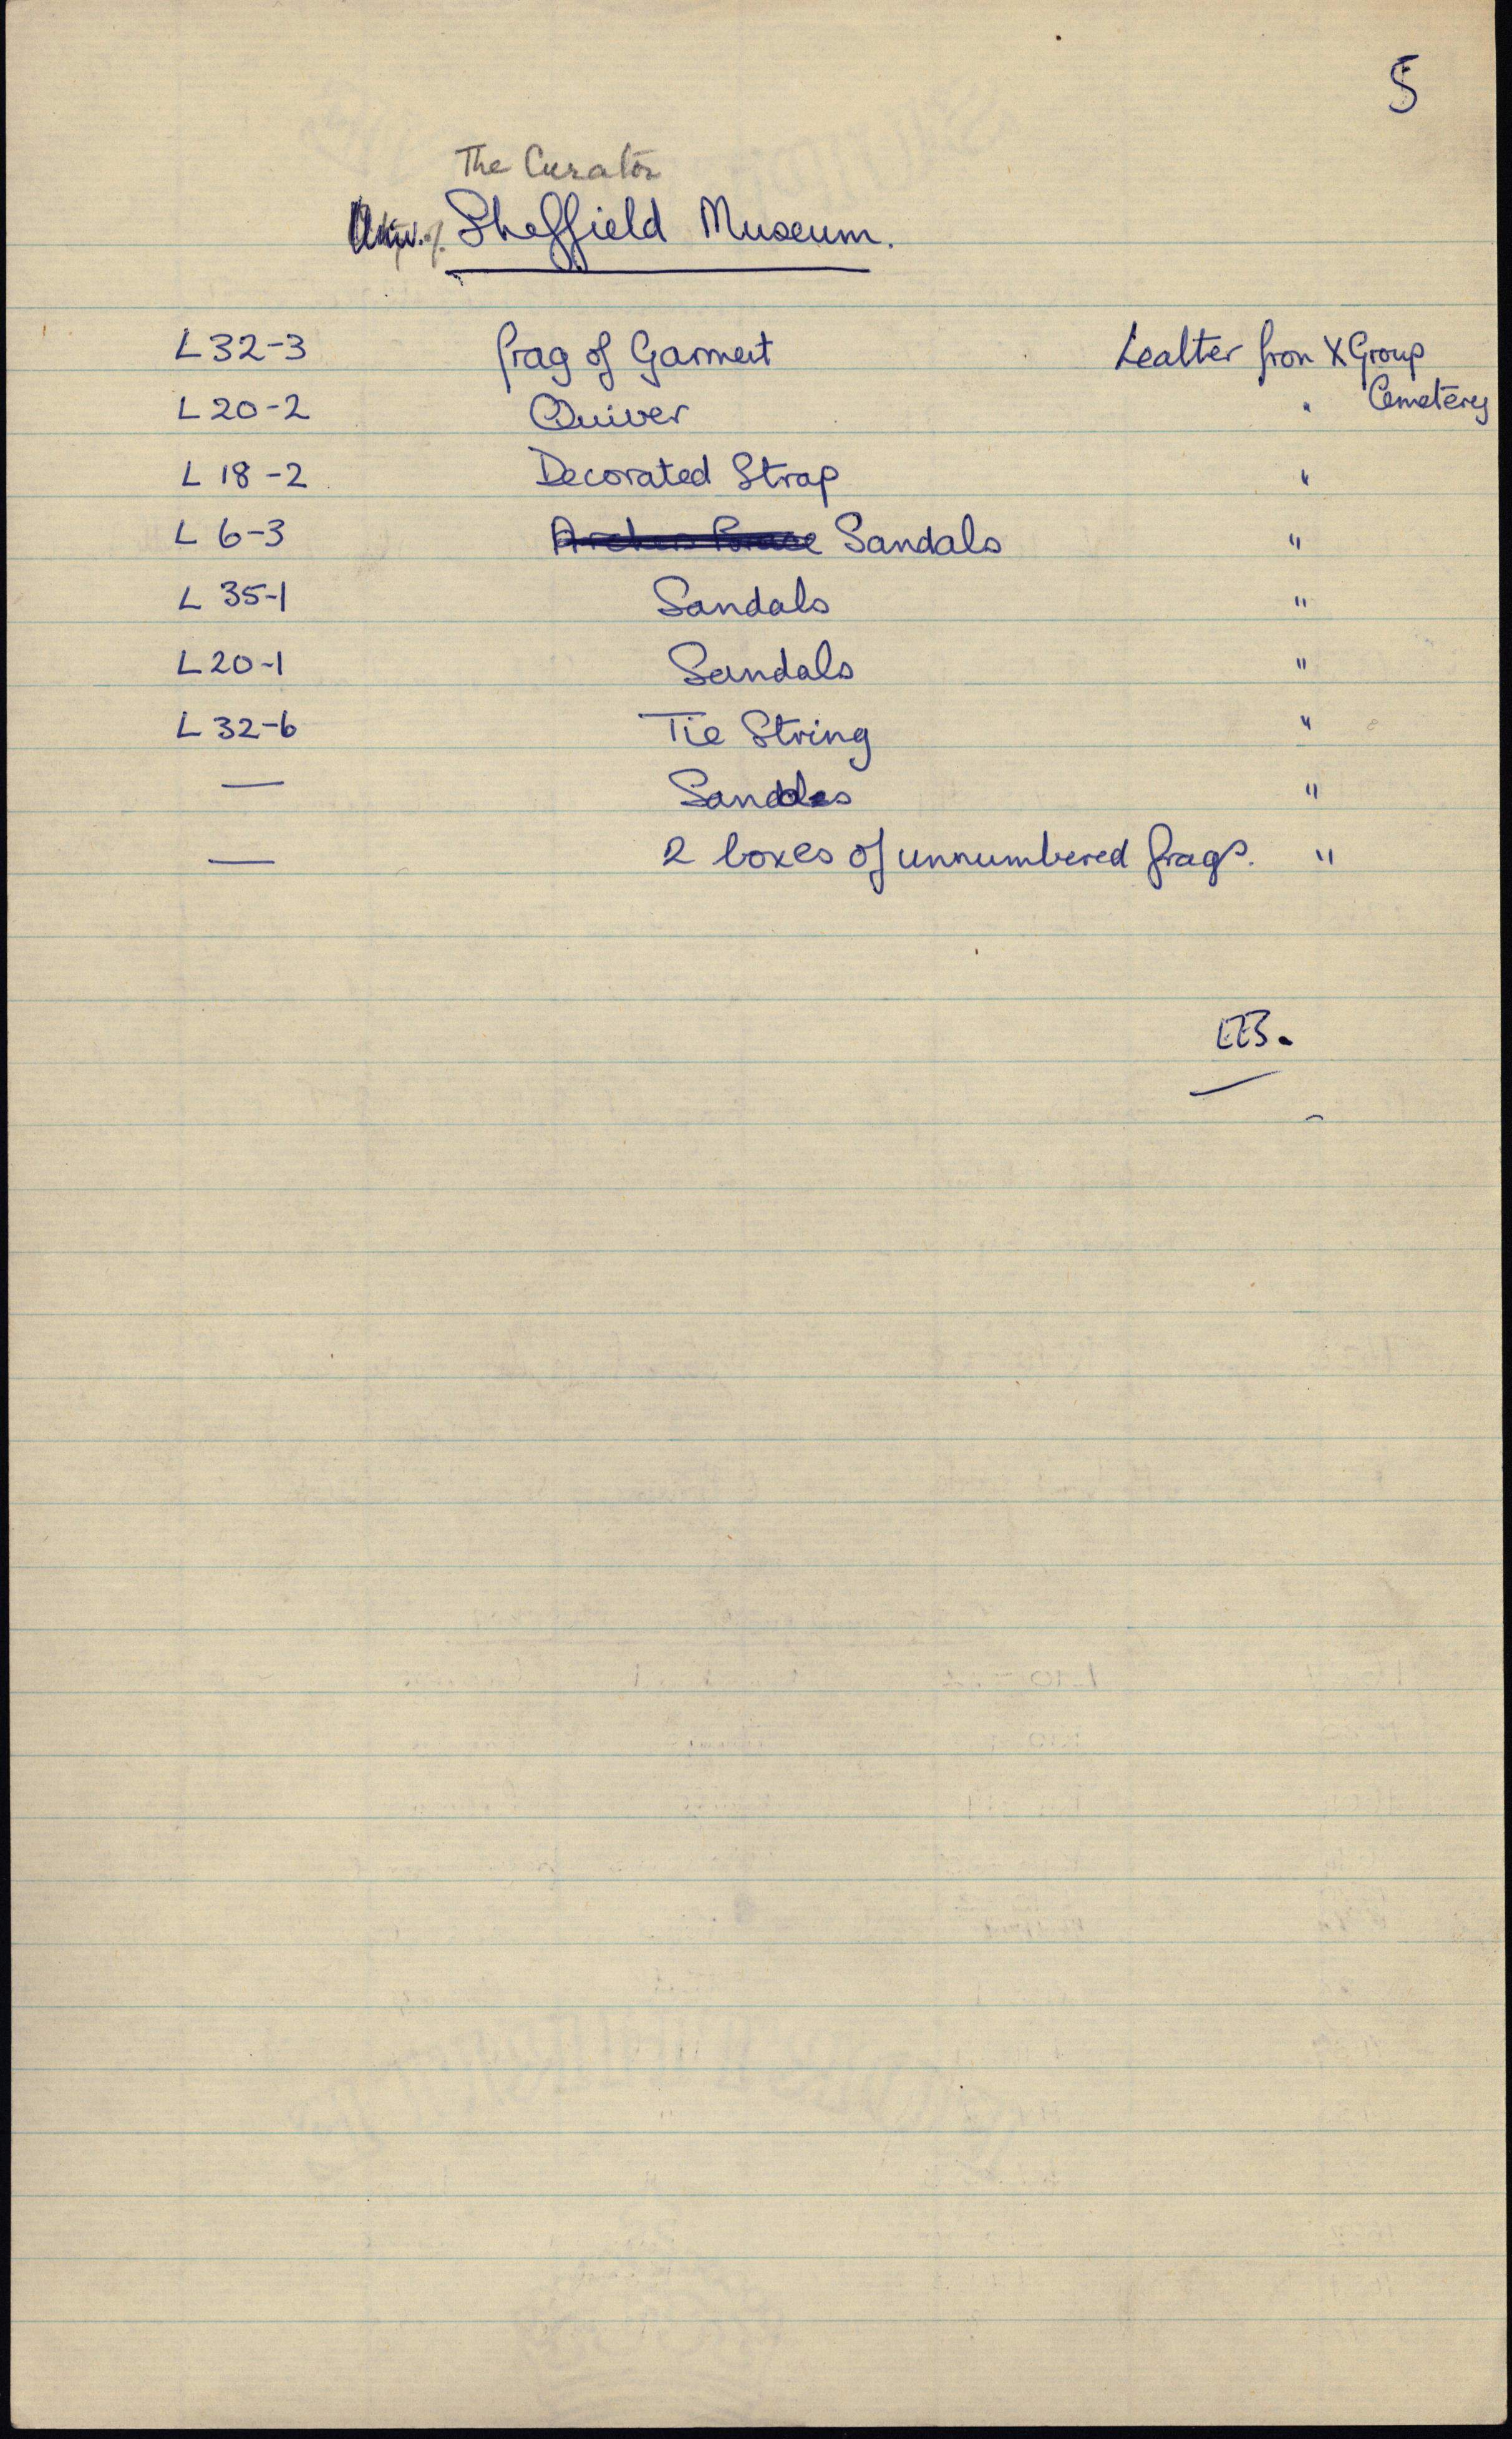 5
The Curator
Univ. of Sheffield Museum.
L 32-3 frag of Garment Leather from X Group
L 20-2 Quiver " Cemetery
L 18-2 Decorated Strap "
L 6-3 Sandals "
L 35-1 Sandals "
L 20-1 Sandals "
L 32-6 Tie String "
— Sandals "
— 2 boxes of unnumbered frags. "
EB.